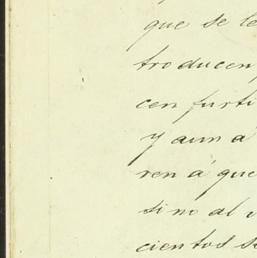 que se le
troducen
cen furti
y aun á
ren á que
sino al
cientos s